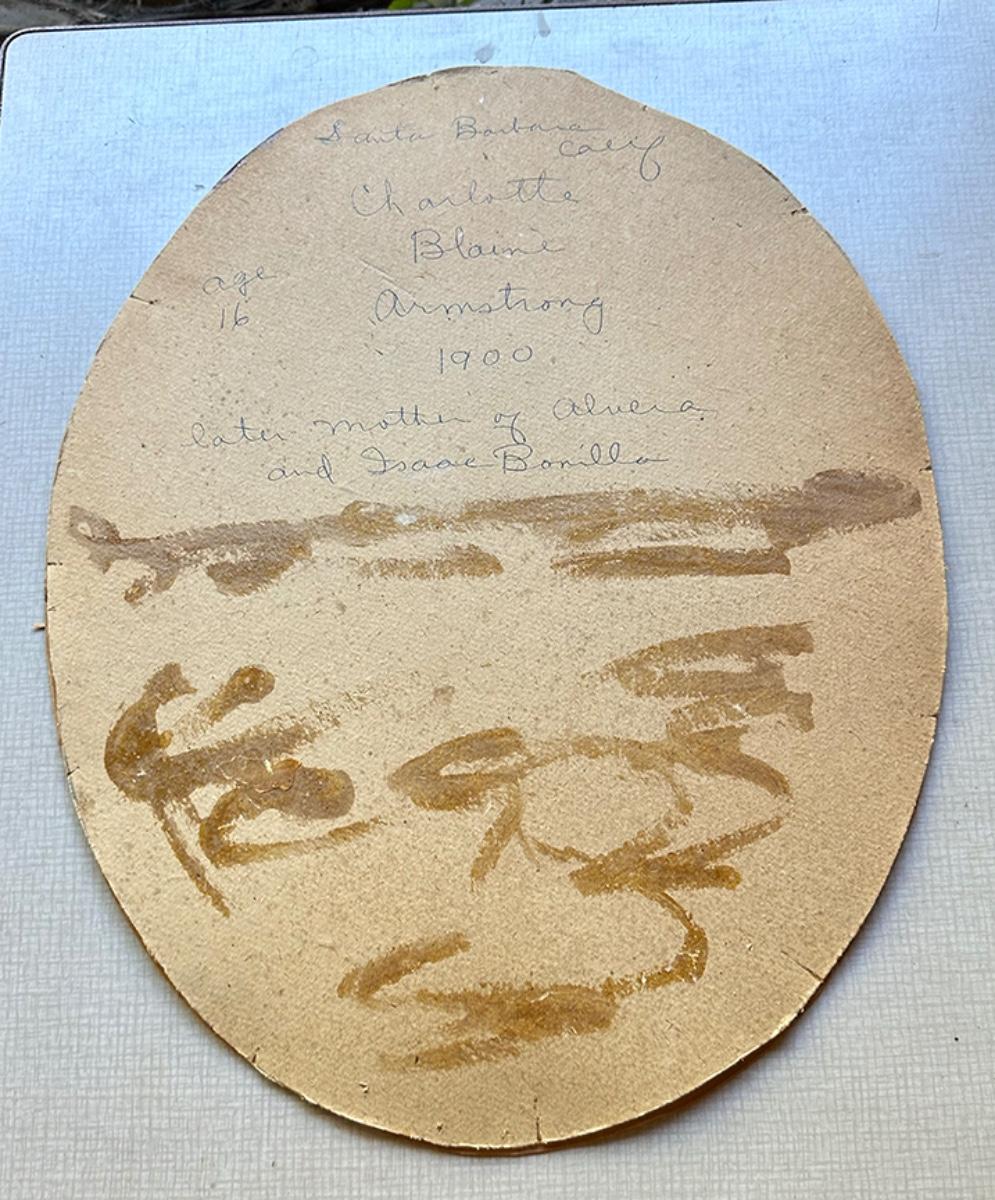 Santa Barbara
Calif
Charlotte
Blaine
age
16
Armstrong
1900
later mother of Alvera
and Isaac Bonilla